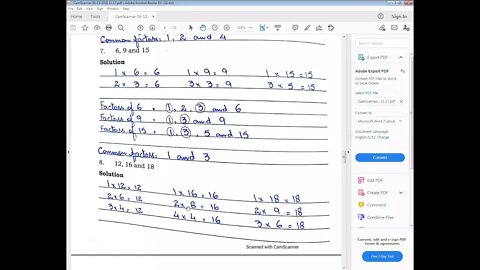 CamScanner 04-13-2021 11.17.pdf - Adobe Acrobat Reader DC (32-bit)
File Edit View Sign Window Help
Home Tools CamScanner 04-13... Sign In
Common factors: 1, 2 and 4
7. 6, 9 and 15
Solution
1 × 6 = 6 1 × 9 = 9 1 × 15 = 15
2 × 3 = 6 3 × 3 = 9 3 × 5 = 15
Factors of 6 = 1, 2, 3 and 6
Factors of 9 = 1, 3 and 9
Factors of 15 = 1, 3, 5 and 15
Common factors: 1 and 3
8. 12, 16 and 18
Solution
1 × 12 = 12 1 × 16 = 16 1 × 18 = 18
2 × 6 = 12 2 × 8 = 16 2 × 9 = 18
3 × 4 = 12 4 × 4 = 16 3 × 6 = 18
Scanned with CamScanner
Export PDF
Adobe Export PDF
Convert PDF Files to Word or Excel Online
Select PDF File
CamScanner... 11.17.pdf
Convert to
Microsoft Word (*.docx)
Document Language:
English (U.S.) Change
Convert
Edit PDF
Create PDF
Comment
Combine Files
Convert, edit and e-sign PDF forms & agreements
Free 7-Day Trial